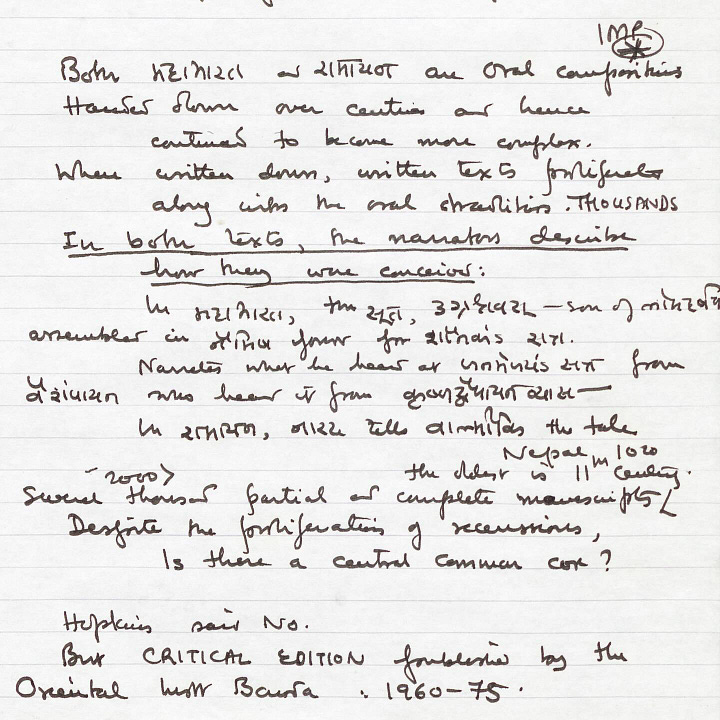 IMP
Both મહાભારત and રામાયણ are oral compositions
Handed down over centuries and hence
continued to become more complex.
When written down, written texts proliferated
along with the oral traditions. THOUSANDS
In both texts, the narrators describe
how they were conceived:
In મહાભારત, the સૂત, ઉગ્રશ્રવસ — son of
assembled in નૈમિષ forest for
Narrates what he heard at from
વૈશંપાયન who heard it from કૃષ્ણદ્વૈપાયન વ્યાસ —
In રામાયણ, નારદ tells the tale
Nepal, 1020
~2000> the oldest is 11th Century.
Several thousand partial or complete manuscripts
Despite the proliferation of recensions,
Is there a central common core?
Hopkins said No.
But CRITICAL EDITION published by the
Oriental Instt Baroda : 1960-75.